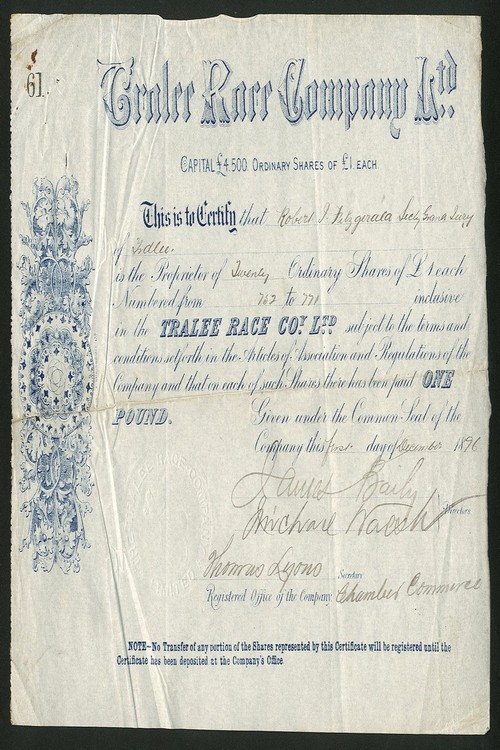 61
Tralee Race Company Ltd
CAPITAL £4,500. ORDINARY SHARES OF £1. EACH
This is to Certify that Robert J. Fitzgerald Secty Grand Jury
of Tralee
is the Proprietor of Twenty Ordinary Shares of £1. each
Numbered from 752 to 771 inclusive
in the TRALEE RACE COY. LTD. subject to the terms and
conditions set forth in the Articles of Association and Regulations of the
Company and that on each of such Shares there has been paid ONE
POUND. Given under the Common Seal of the
Company this first day of December 1896
James Baily
Michael Walsh Directors
Thomas Lyons Secretary
Registered Office of the Company Chamber Commerce
NOTE—No Transfer of any portion of the Shares represented by this Certificate will be registered until the
Certificate has been deposited at the Company's Office